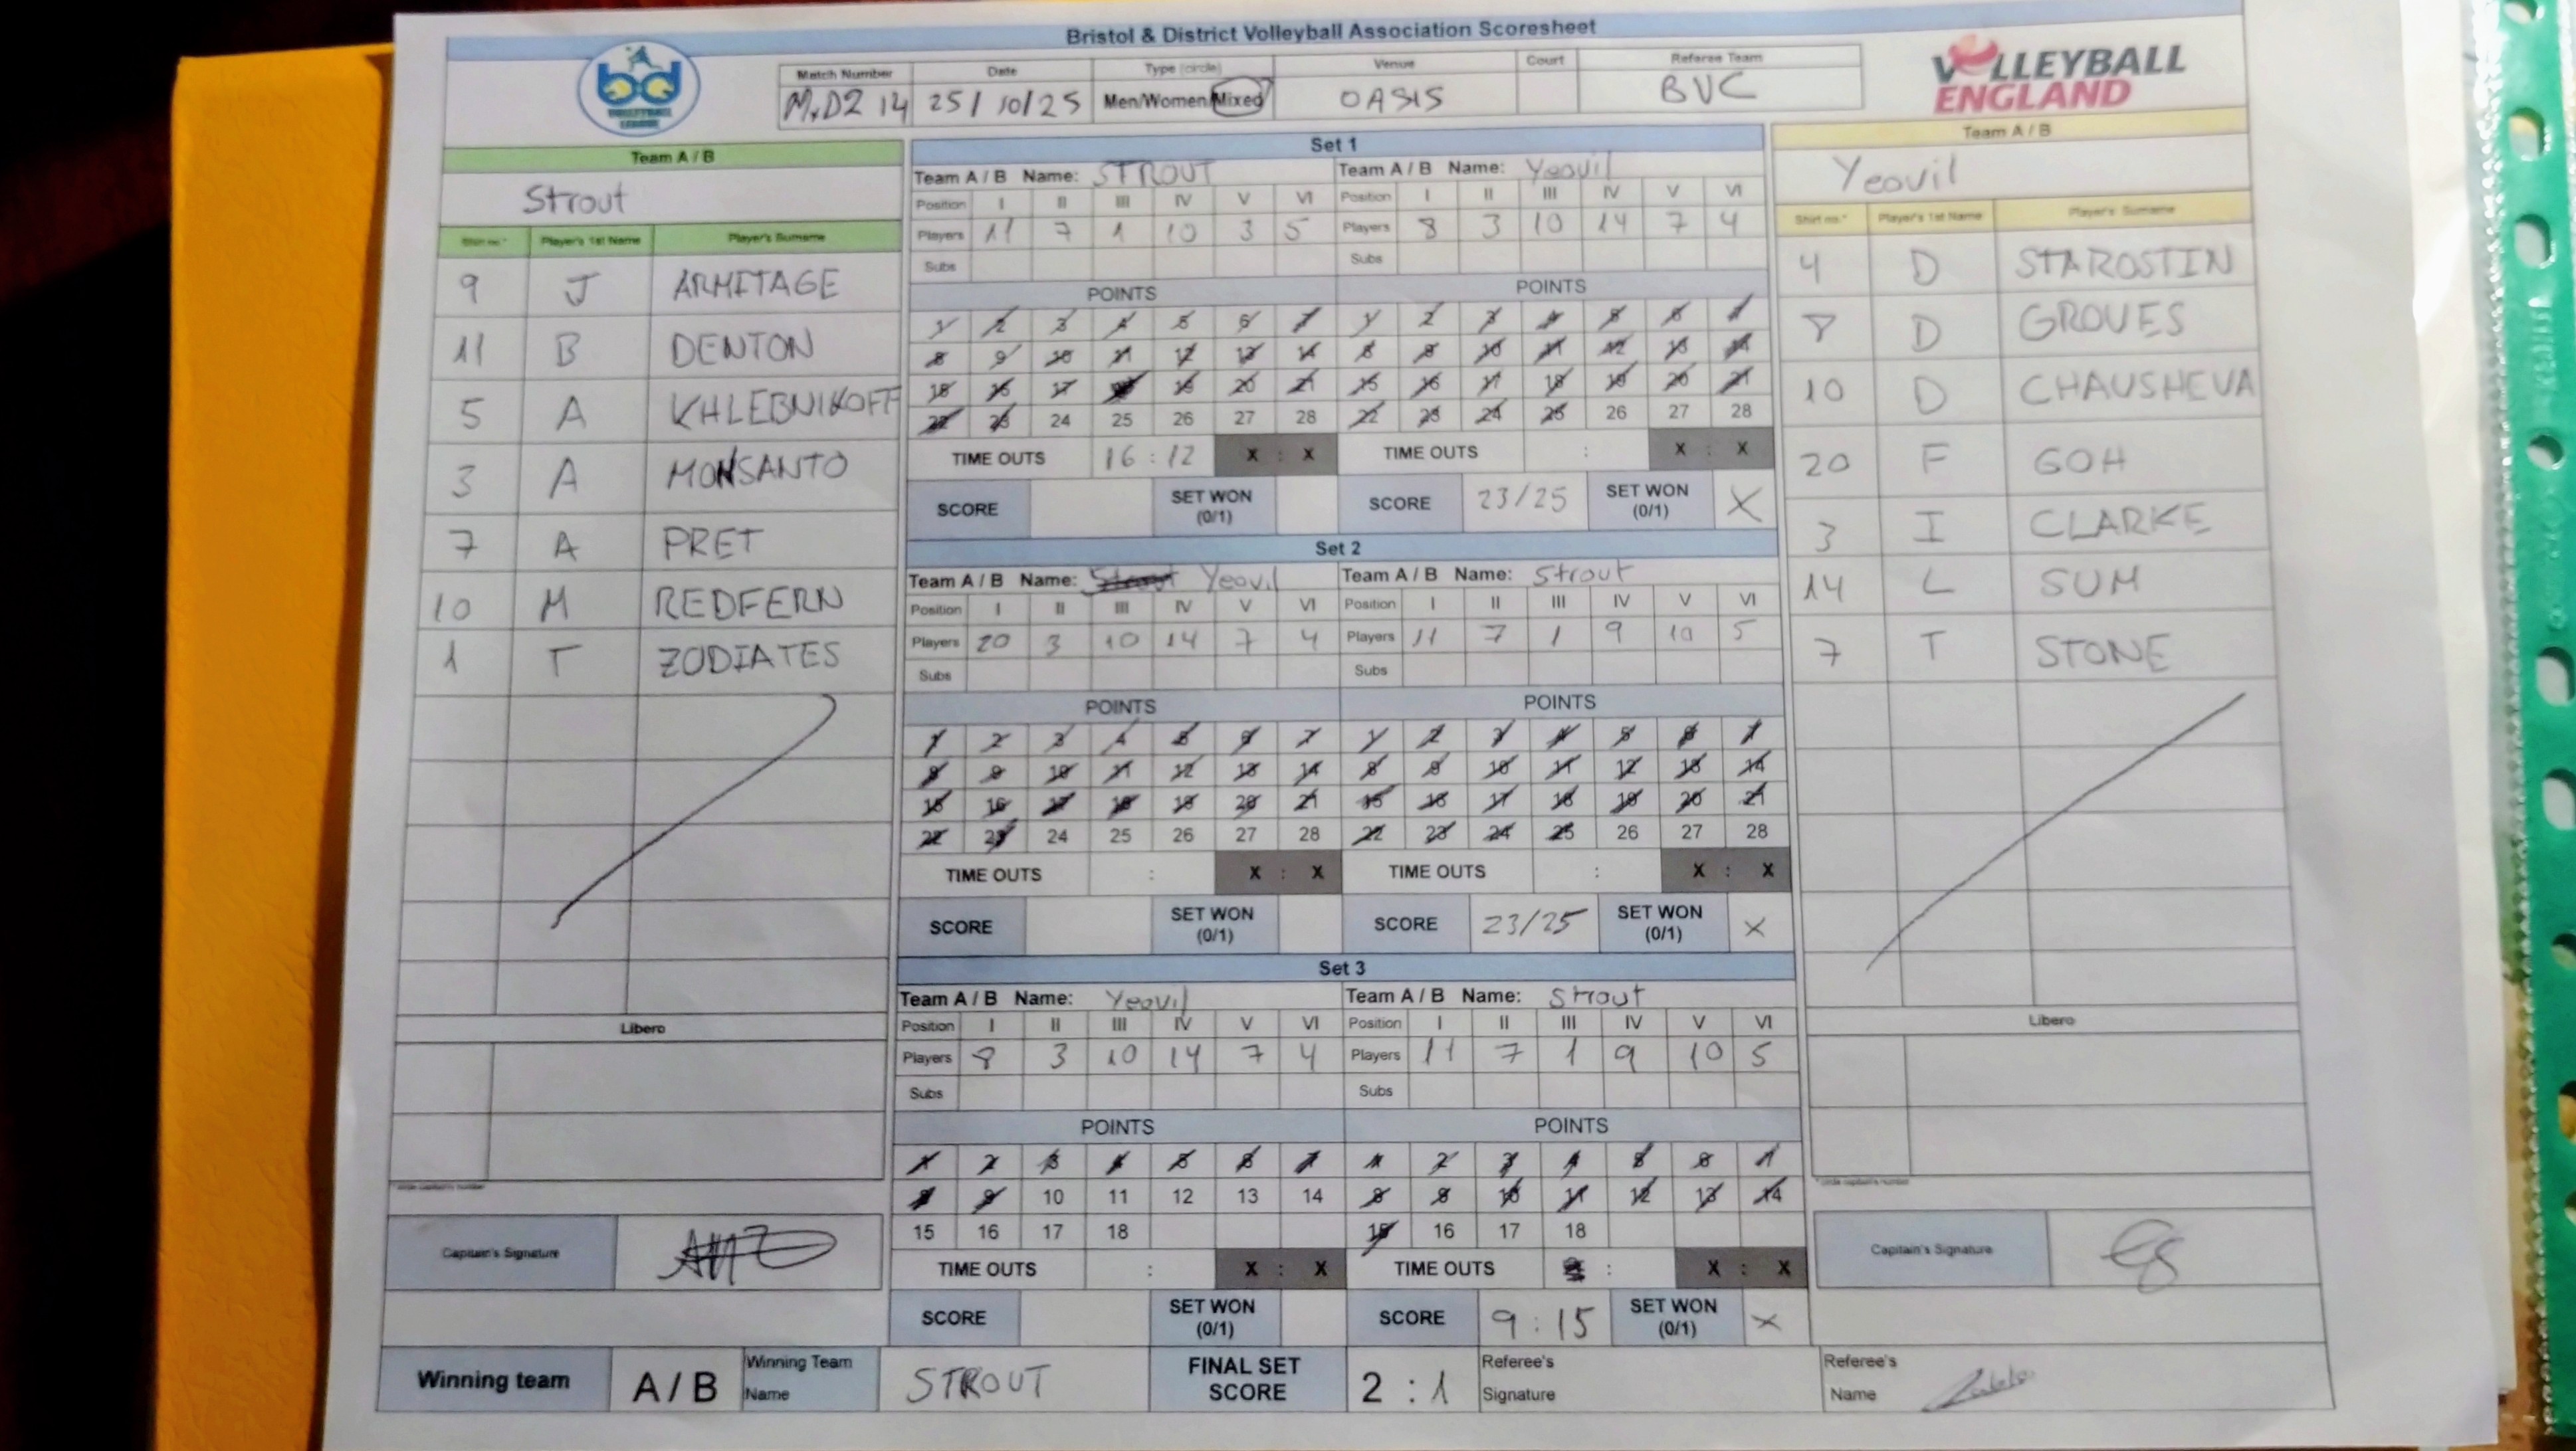 Bristol & District Volleyball Association Scoresheet
bd
VOLLEYBALL
LEAGUE
Match Number Date Type (circle) Venue Court Referee Team
MxD2 14 25/10/25 Men/Women/Mixed OASIS BVC
VOLLEYBALL
ENGLAND
Team A / B
Strout
Shirt no.* Player's 1st Name Player's Surname
9 J ARMITAGE
11 B DENTON
5 A KHLEBNIKOFF
3 A MONSANTO
7 A PRET
10 M REDFERN
1 T ZODIATES
Libero
* circle captain's number
Captain's Signature
Set 1
Team A / B Name: STROUT Team A / B Name: Yeovil
Position I II III IV V VI Position I II III IV V VI
Players 11 7 1 10 3 5 Players 8 3 10 14 7 4
Subs Subs
POINTS POINTS
1 2 3 4 5 6 7 1 2 3 4 5 6 7
8 9 10 11 12 13 14 8 9 10 11 12 13 14
15 16 17 18 19 20 21 15 16 17 18 19 20 21
22 23 24 25 26 27 28 22 23 24 25 26 27 28
TIME OUTS 16 : 12 X : X TIME OUTS : X : X
SCORE SET WON (0/1) SCORE 23/25 SET WON (0/1) X
Set 2
Team A / B Name: Strout Yeovil Team A / B Name: Strout
Position I II III IV V VI Position I II III IV V VI
Players 20 3 10 14 7 4 Players 11 7 1 9 10 5
Subs Subs
POINTS POINTS
1 2 3 4 5 6 7 1 2 3 4 5 6 7
8 9 10 11 12 13 14 8 9 10 11 12 13 14
15 16 17 18 19 20 21 15 16 17 18 19 20 21
22 23 24 25 26 27 28 22 23 24 25 26 27 28
TIME OUTS : X : X TIME OUTS : X : X
SCORE SET WON (0/1) SCORE 23/25 SET WON (0/1) X
Set 3
Team A / B Name: Yeovil Team A / B Name: Strout
Position I II III IV V VI Position I II III IV V VI
Players 8 3 10 14 7 4 Players 11 7 1 9 10 5
Subs Subs
POINTS POINTS
1 2 3 4 5 6 7 1 2 3 4 5 6 7
8 9 10 11 12 13 14 8 9 10 11 12 13 14
15 16 17 18 15 16 17 18
TIME OUTS : X : X TIME OUTS : X : X
SCORE SET WON (0/1) SCORE 9 : 15 SET WON (0/1) X
Team A / B
Yeovil
Shirt no.* Player's 1st Name Player's Surname
4 D STAROSTIN
8 D GROVES
10 D CHAUSHEVA
20 F GOH
3 I CLARKE
14 L SUM
7 T STONE
Libero
* circle captain's number
Captain's Signature
Winning team A / B Winning Team Name STROUT FINAL SET SCORE 2 : 1 Referee's Signature Referee's Name